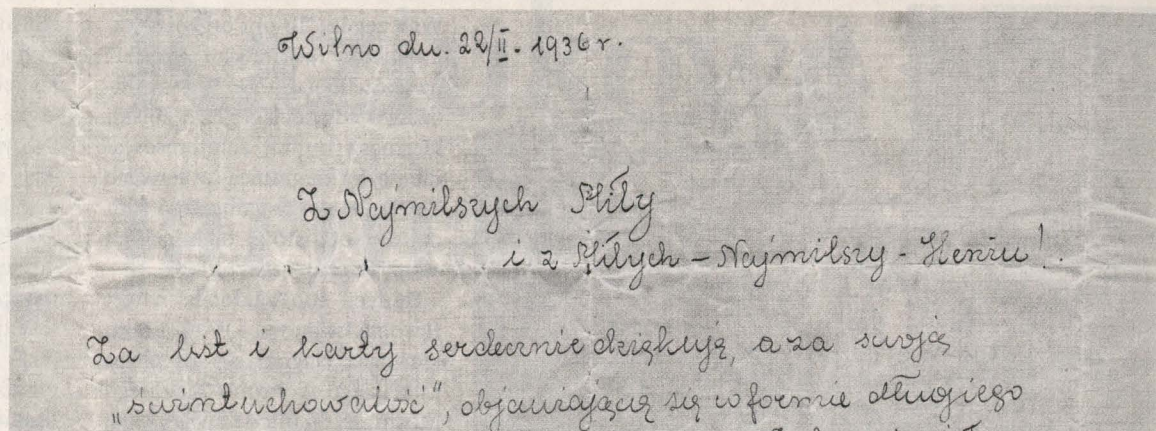 Wilno dn. 22/II. 1936 r.
Z Najmilszych Miły
i z Miłych – Najmilszy - Heniu!
Za list i karty serdecznie dziękuję, a za swoją
„świntuchowatość", objawiającą się w formie długiego